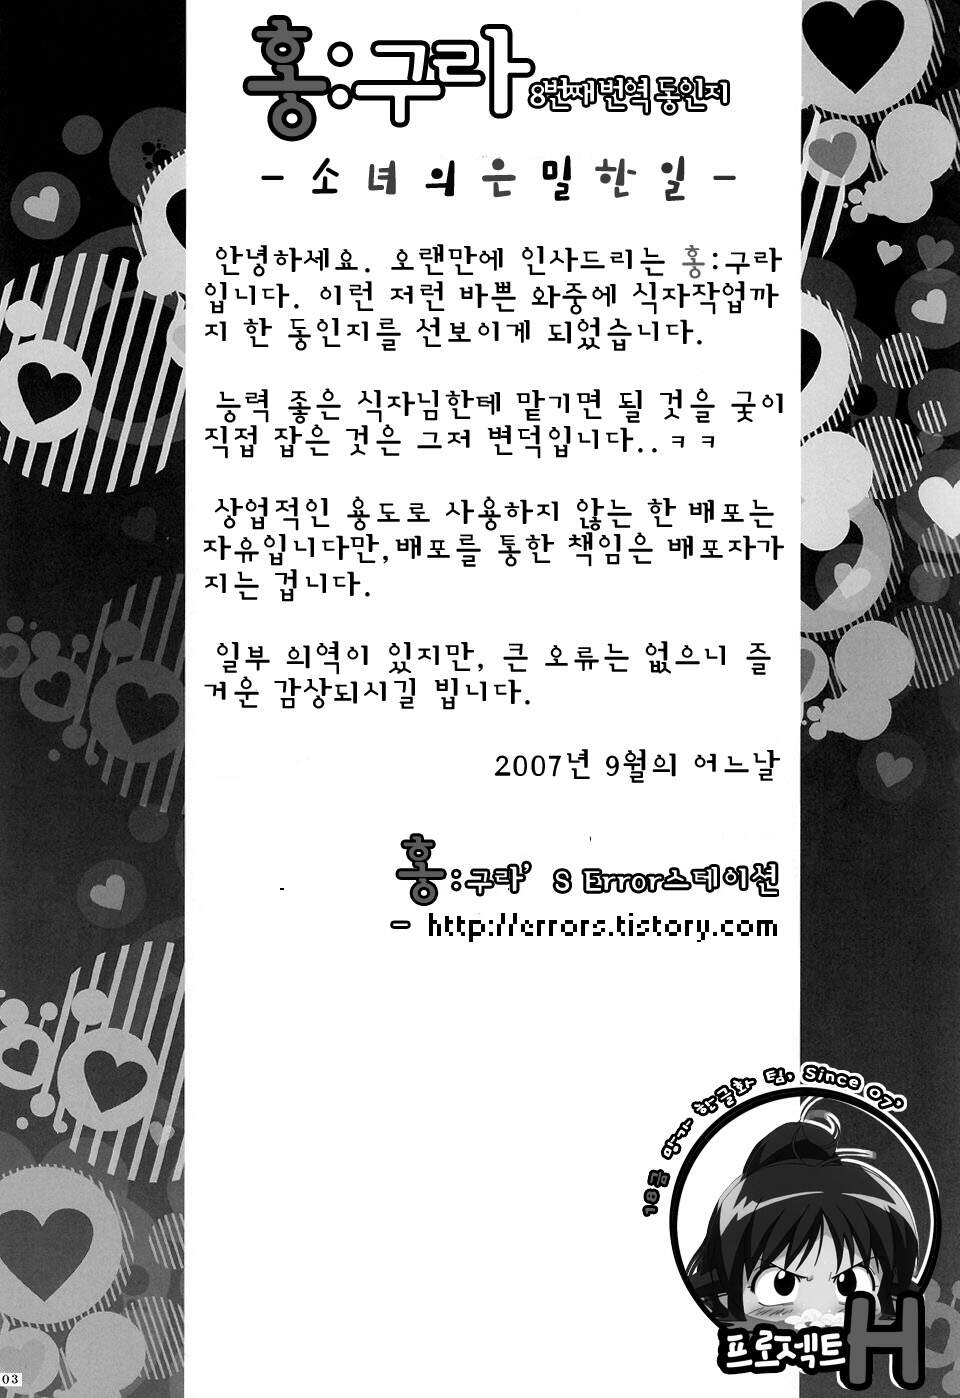 홍:구라 8번째 번역 동인지
- 소녀의 은밀한 일 -
안녕하세요. 오랜만에 인사드리는 홍:구라
입니다. 이런 저런 바쁜 와중에 식자작업까
지 한 동인지를 선보이게 되었습니다.
능력 좋은 식자님한테 맡기면 될 것을 궂이
직접 잡은 것은 그저 변덕입니다..ㅋㅋ
상업적인 용도로 사용하지 않는 한 배포는
자유입니다만,배포를 통한 책임은 배포자가
지는 겁니다.
일부 의역이 있지만, 큰 오류는 없으니 즐
거운 감상되시길 빕니다.
2007년 9월의 어느날
홍:구라’S Error스테이션
- http://errors.tistory.com
18금 망가 한글화 팀, Since 07'
프로젝트 H
03